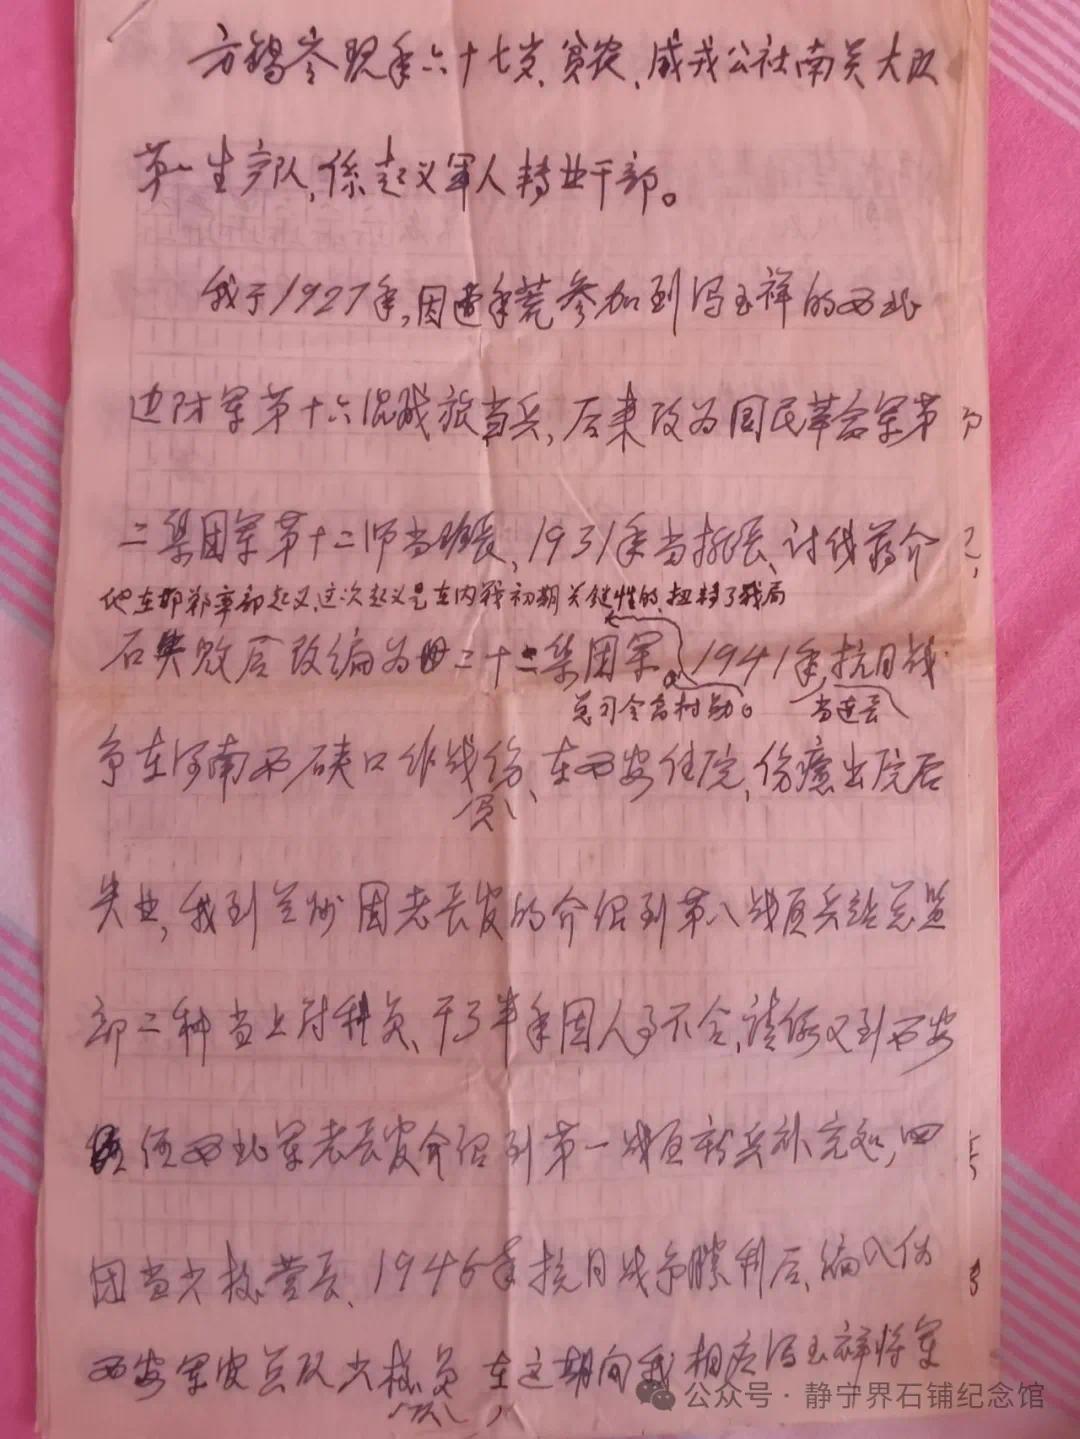 方锡岑现年六十七岁、贫农、威戎公社南关大队
第一生产队,係起义军人转业干部。
我于1927年,因遭年荒参加到冯玉祥的西北
边防军第十六混成旅当兵,后来改为国民革命军第
二集团军第十二师当班长、1931年当排长、讨伐蒋介
他在邯郸率部起义,这次起义是在内战初期关键性的,扭转了战局
石失败后改编为 二十二集团军 1941年,抗日战
总司令高树勋。 当连长
争在河南西硖口作战伤、在西安住院,伤癒出院后
负
失业,我到兰州因老长官的介绍到第八战区兵站总监
部二科当上尉科员、干了半年因人事不合,请假又到西安
经西北军老长官介绍到第一战区新兵补充处,四
团当少校营长、1946年抗日战争胜利后、编入伪
西安军官总队少校员 在这期间我相应冯玉祥将军
公众号·静宁界石铺纪念馆